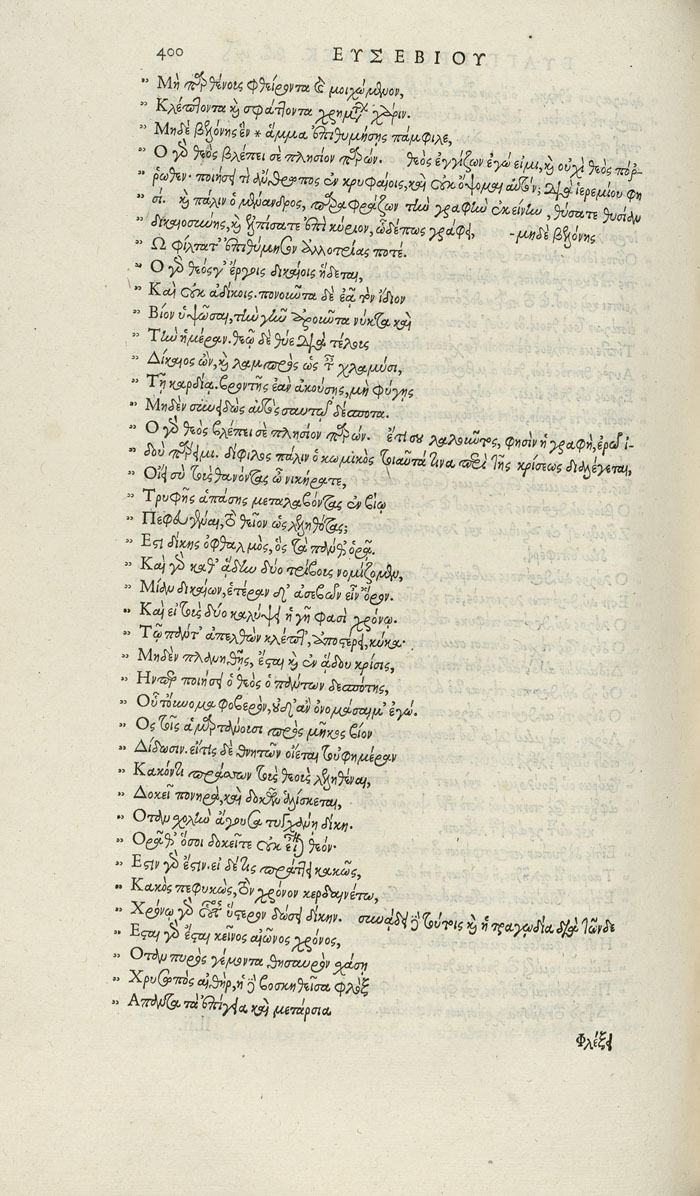 400 ΕΥΣΕΒΙΟΥ
Μὴ παρθένοις φθείροντα καὶ μοιχώμενον,
Κλέπτοντα καὶ σφάττοντα χρημάτων χάριν.
Μηδὲ βελόνης ἓν * ἅμμα ἐπιθυμήσῃς πάμφιλε,
Ο γὰρ θεὸς βλέπει σε πλησίον παρών. θεὸς ἐγγίζων ἐγώ εἰμι, καὶ οὐχὶ θεὸς πόρ-
ρωθεν· ποιήσει τὶ ἄνθρωπος ἐν κρυφαίοις, καὶ οὐκ ὄψομαι αὐτόν; διὰ ἱερεμίου φη
σί. καὶ πάλιν ὁ μένανδρος, παραφράζων τὴν γραφὴν ἐκείνην, θύσατε θυσίαν
δικαιοσύνης, καὶ ἐλπίσατε ἐπὶ κύριον, ὧδέπως γράφει, -μηδὲ βελόνης
Ω φίλτατ' ἐπιθύμησον ἀλλοτρίας ποτέ.
Ο γὰρ θεός γ' ἔργοις δικαίοις ἥδεται,
Καὶ οὐκ ἀδίκοις. πονοιῶτα δὲ ἐᾷ τὸν ἴδιον
Βίον ὑψῶσαι, τὴν γῆν ἀροιῶτα νύκτα καὶ
Τὴν ἡμέραν. θεῷ δὲ θύε διὰ τέλοις
Δίκαιος ὢν, καὶ λαμπρὸς ὡς ταῖς χλαμύσι,
Τῇ καρδίᾳ. βροντῆς ἐὰν ἀκούσῃς, μὴ φύγῃς
Μηδὲν συνειδὼς αὐτὸς σαυτῷ δέσποτα.
Ο γὰρ θεὸς βλέπει σὲ πλησίον παρών. ἔτι σου λαλοιῶτος, φησὶν ἡ γραφὴ, ἐρῶ ἰ-
δοὺ πάρειμι. δίφιλος πάλιν ὁ κωμικὸς τοιαῦτά τινα περὶ τῆς κρίσεως διαλέγεται,
Οἴει σὺ τοὺς θανόντας ὦ νικήρατε,
Τρυφῆς ἁπάσης μεταλαβόντας ἐν βίῳ
Πεφευγέναι, τὸ θεῖον ὡς λεληθότας;
Εστι δίκης ὀφθαλμὸς, ὃς τὰ πάνθ' ὁρᾷ.
Καὶ γὰρ καθ' ᾅδην δύο τρίβοις νομίζομεν,
Μίαν δικαίων, ἑτέραν δ' ἀσεβῶν εἶν' ὅρον.
Καὶ εἰ τοὺς δύο καλύψει ἡ γῆ φασὶ χρόνῳ.
Τῷ πάντ' ἀπελθὼν κλέπτ', ἀποστέρει, κύκα·
Μηδὲν πλανηθῇς, ἔσται καὶ ἐν ᾅδου κρίσις,
Ηνπερ ποιήσει ὁ θεὸς ὁ πάντων δεσπότης,
Οὗ τοὔνομα φοβερὸν, οὐδ' ἂν ὀνομάσαιμ' ἐγώ.
Ος τοῖς ἁμαρτάνουσι πρὸς μῆκος βίον
Δίδωσιν. εἴτις δὲ θνητῶν οἴεται τοὐφημέραν
Κακόν τι πράσσων τοὺς θεοὺς λεληθέναι,
Δοκεῖ πονηρὰ, καὶ δοκῶν ἁλίσκεται,
Οταν σχολὴν ἄγουσα τυγχάνῃ δίκη.
Ορᾶθ' ὅσοι δοκεῖτε οὐκ εἶναι θεόν·
Εστιν γὰρ ἔστιν. εἰ δέ τις πράττει κακῶς,
Κακὸς πεφυκὼς, τὸν χρόνον κερδαινέτω,
Χρόνῳ γὰρ οὗτος ὕστερον δώσει δίκην. συνᾴδει δὲ τούτοις καὶ ἡ τραγωδία διὰ τῶνδε
Εσται γὰρ ἔσται κεῖνος αἰῶνος χρόνος,
Οταν πυρὸς γέμοντα θησαυρὸν χάσῃ
Χρυσωπὸς αἰθὴρ, ἡ δὲ βοσκηθεῖσα φλὸξ
Απαντα τὰ ἐπίγεια καὶ μετάρσια
Φλέξει